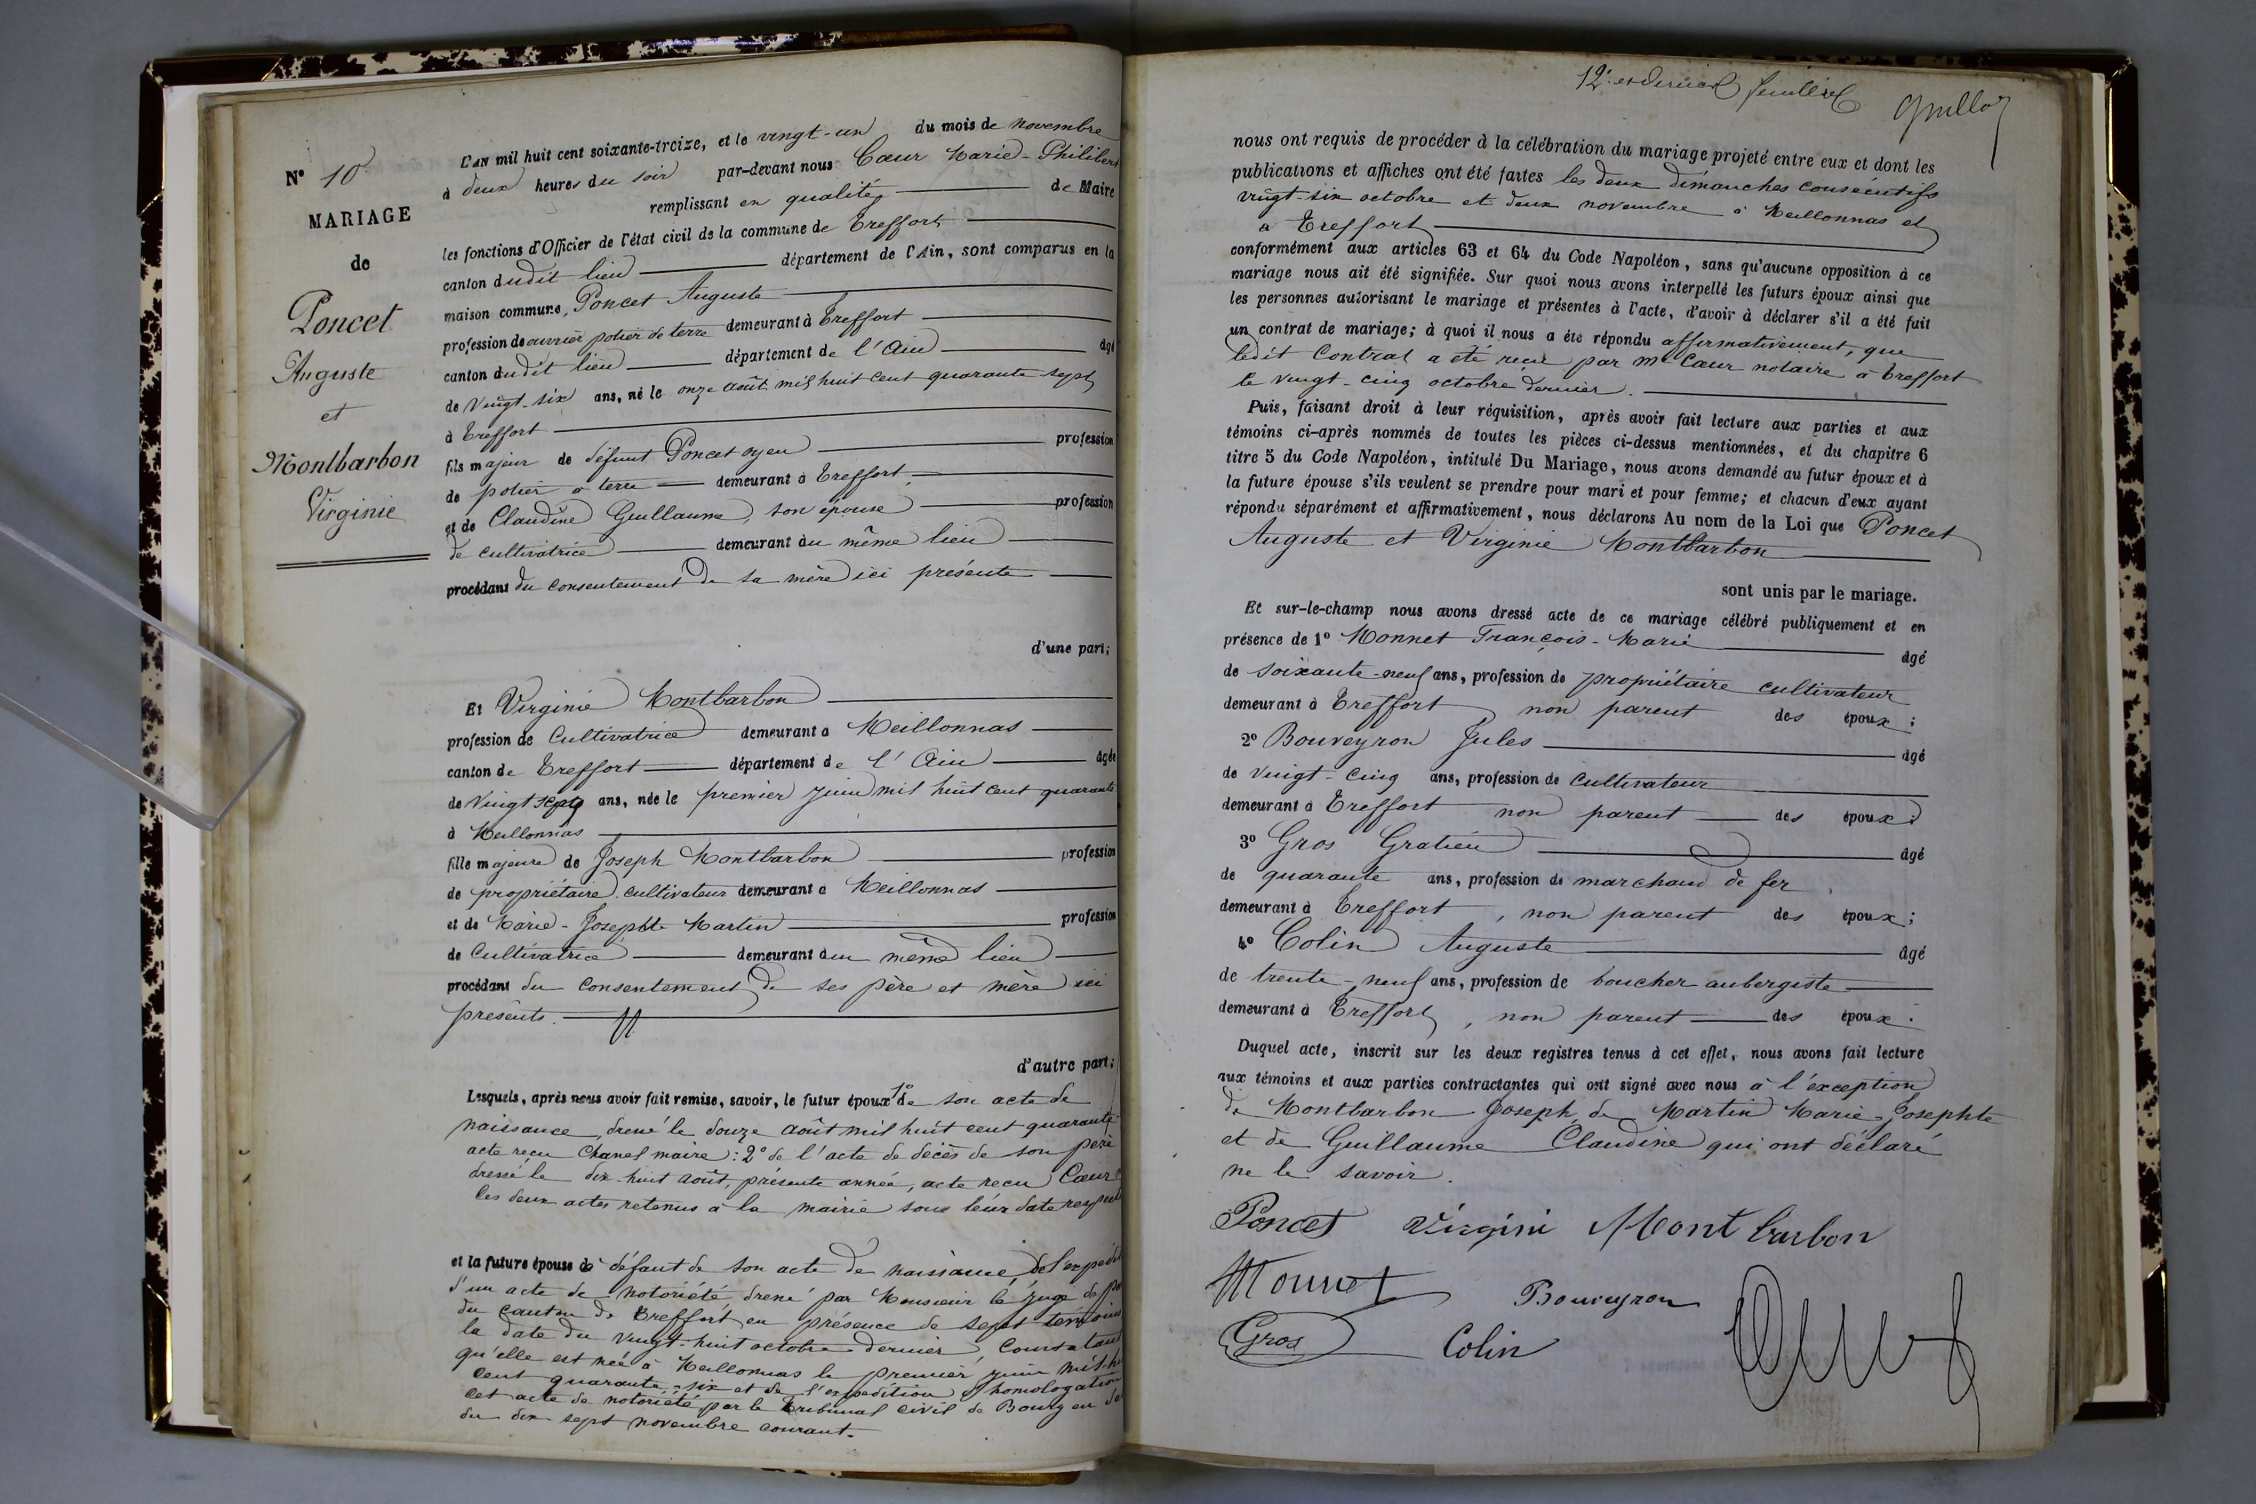 N° 10
MARIAGE
de
Poncet
Auguste
et
Montbarbon
Virginie
L'AN mil huit cent soixante-treize, et le vingt-un du mois de novembre
à deux heures du soir par-devant nous Cœur Marie-Philibert
remplissant en qualité de Maire
les fonctions d'Officier de l'état civil de la commune de Treffort
canton dudit lieu département de l'Ain, sont comparus en la
maison commune, Poncet Auguste
profession de ouvrier potier de terre demeurant à Treffort
canton dudit lieu département de l'Ain âgé
de vingt-six ans, né le onze août mil huit cent quarante sept
à Treffort
fils majeur de défunt Poncet oyen profession
de potier à terre demeurant à Treffort,
et de Claudine Guillaume, son épouse profession
de cultivatrice demeurant au même lieu
procédant du consentement de sa mère ici présente
d'une part;
Et Virginie Montbarbon
profession de Cultivatrice demeurant à Meillonnas
canton de Treffort département de l'Ain âgée
de vingt sept ans, née le premier juin mil huit cent quarante
à Meillonnas
fille majeure de Joseph Montbarbon profession
de propriétaire cultivateur demeurant à Meillonnas
et de Marie-Josephte Martin profession
de Cultivatrice demeurant au même lieu
procédant du consentement de ses père et mère ici
présents.
d'autre part;
Lesquels, après nous avoir fait remise, savoir, le futur époux 1° de son acte de
naissance, dressé le douze août mil huit cent quarante
acte reçu Chanel maire: 2° de l'acte de décès de son père
dressé le dix-huit août, présente année, acte reçu Cœur
les deux actes retenus à la mairie sous leur date
et la future épouse à défaut de son acte de naissance, de
d'un acte de notoriété dressé par Monsieur le juge de
du canton de Treffort en présence de sept témoins
la date du vingt-huit octobre dernier, Constatant
qu'elle est née à Meillonnas le premier juin mil
cent quarante-six et de l'expédition d'homologation
cet acte de notoriété par le Tribunal civil de Bourg en
du dix sept novembre courant.
12e et dernier feuillet Guillon
nous ont requis de procéder à la célébration du mariage projeté entre eux et dont les
publications et affiches ont été faites les deux dimanches consécutifs
vingt-six octobre et deux novembre à Meillonnas et
à Treffort
conformément aux articles 63 et 64 du Code Napoléon, sans qu'aucune opposition à ce
mariage nous ait été signifiée. Sur quoi nous avons interpellé les futurs époux ainsi que
les personnes autorisant le mariage et présentes à l'acte, d'avoir à déclarer s'il a été fait
un contrat de mariage; à quoi il nous a été répondu affirmativement, que
ledit Contrat a été reçu par Me Cœur notaire à Treffort
le vingt-cinq octobre dernier.
Puis, faisant droit à leur réquisition, après avoir fait lecture aux parties et aux
témoins ci-après nommés de toutes les pièces ci-dessus mentionnées, et du chapitre 6
titre 5 du Code Napoléon, intitulé Du Mariage, nous avons demandé au futur époux et à
la future épouse s'ils veulent se prendre pour mari et pour femme; et chacun d'eux ayant
répondu séparément et affirmativement, nous déclarons Au nom de la Loi que Poncet
Auguste et Virginie Montbarbon
sont unis par le mariage.
Et sur-le-champ nous avons dressé acte de ce mariage célébré publiquement et en
présence de 1° Monnet François-Marie âgé
de soixante-neuf ans, profession de propriétaire cultivateur
demeurant à Treffort non parent des époux;
2° Bouveyron Jules âgé
de vingt-cinq ans, profession de Cultivateur
demeurant à Treffort non parent des époux;
3° Gros Gratien âgé
de quarante ans, profession de marchand de fer
demeurant à Treffort, non parent des époux;
4° Colin Auguste âgé
de trente-neuf ans, profession de boucher aubergiste
demeurant à Treffort, non parent des époux.
Duquel acte, inscrit sur les deux registres tenus à cet effet, nous avons fait lecture
aux témoins et aux parties contractantes qui ont signé avec nous à l'exception
de Montbarbon Joseph, de Martin Marie-Josephte
et de Guillaume Claudine qui ont déclaré
ne le savoir.
Poncet Virgini Montbarbon
Monnet Bouveyron
Gros Colin